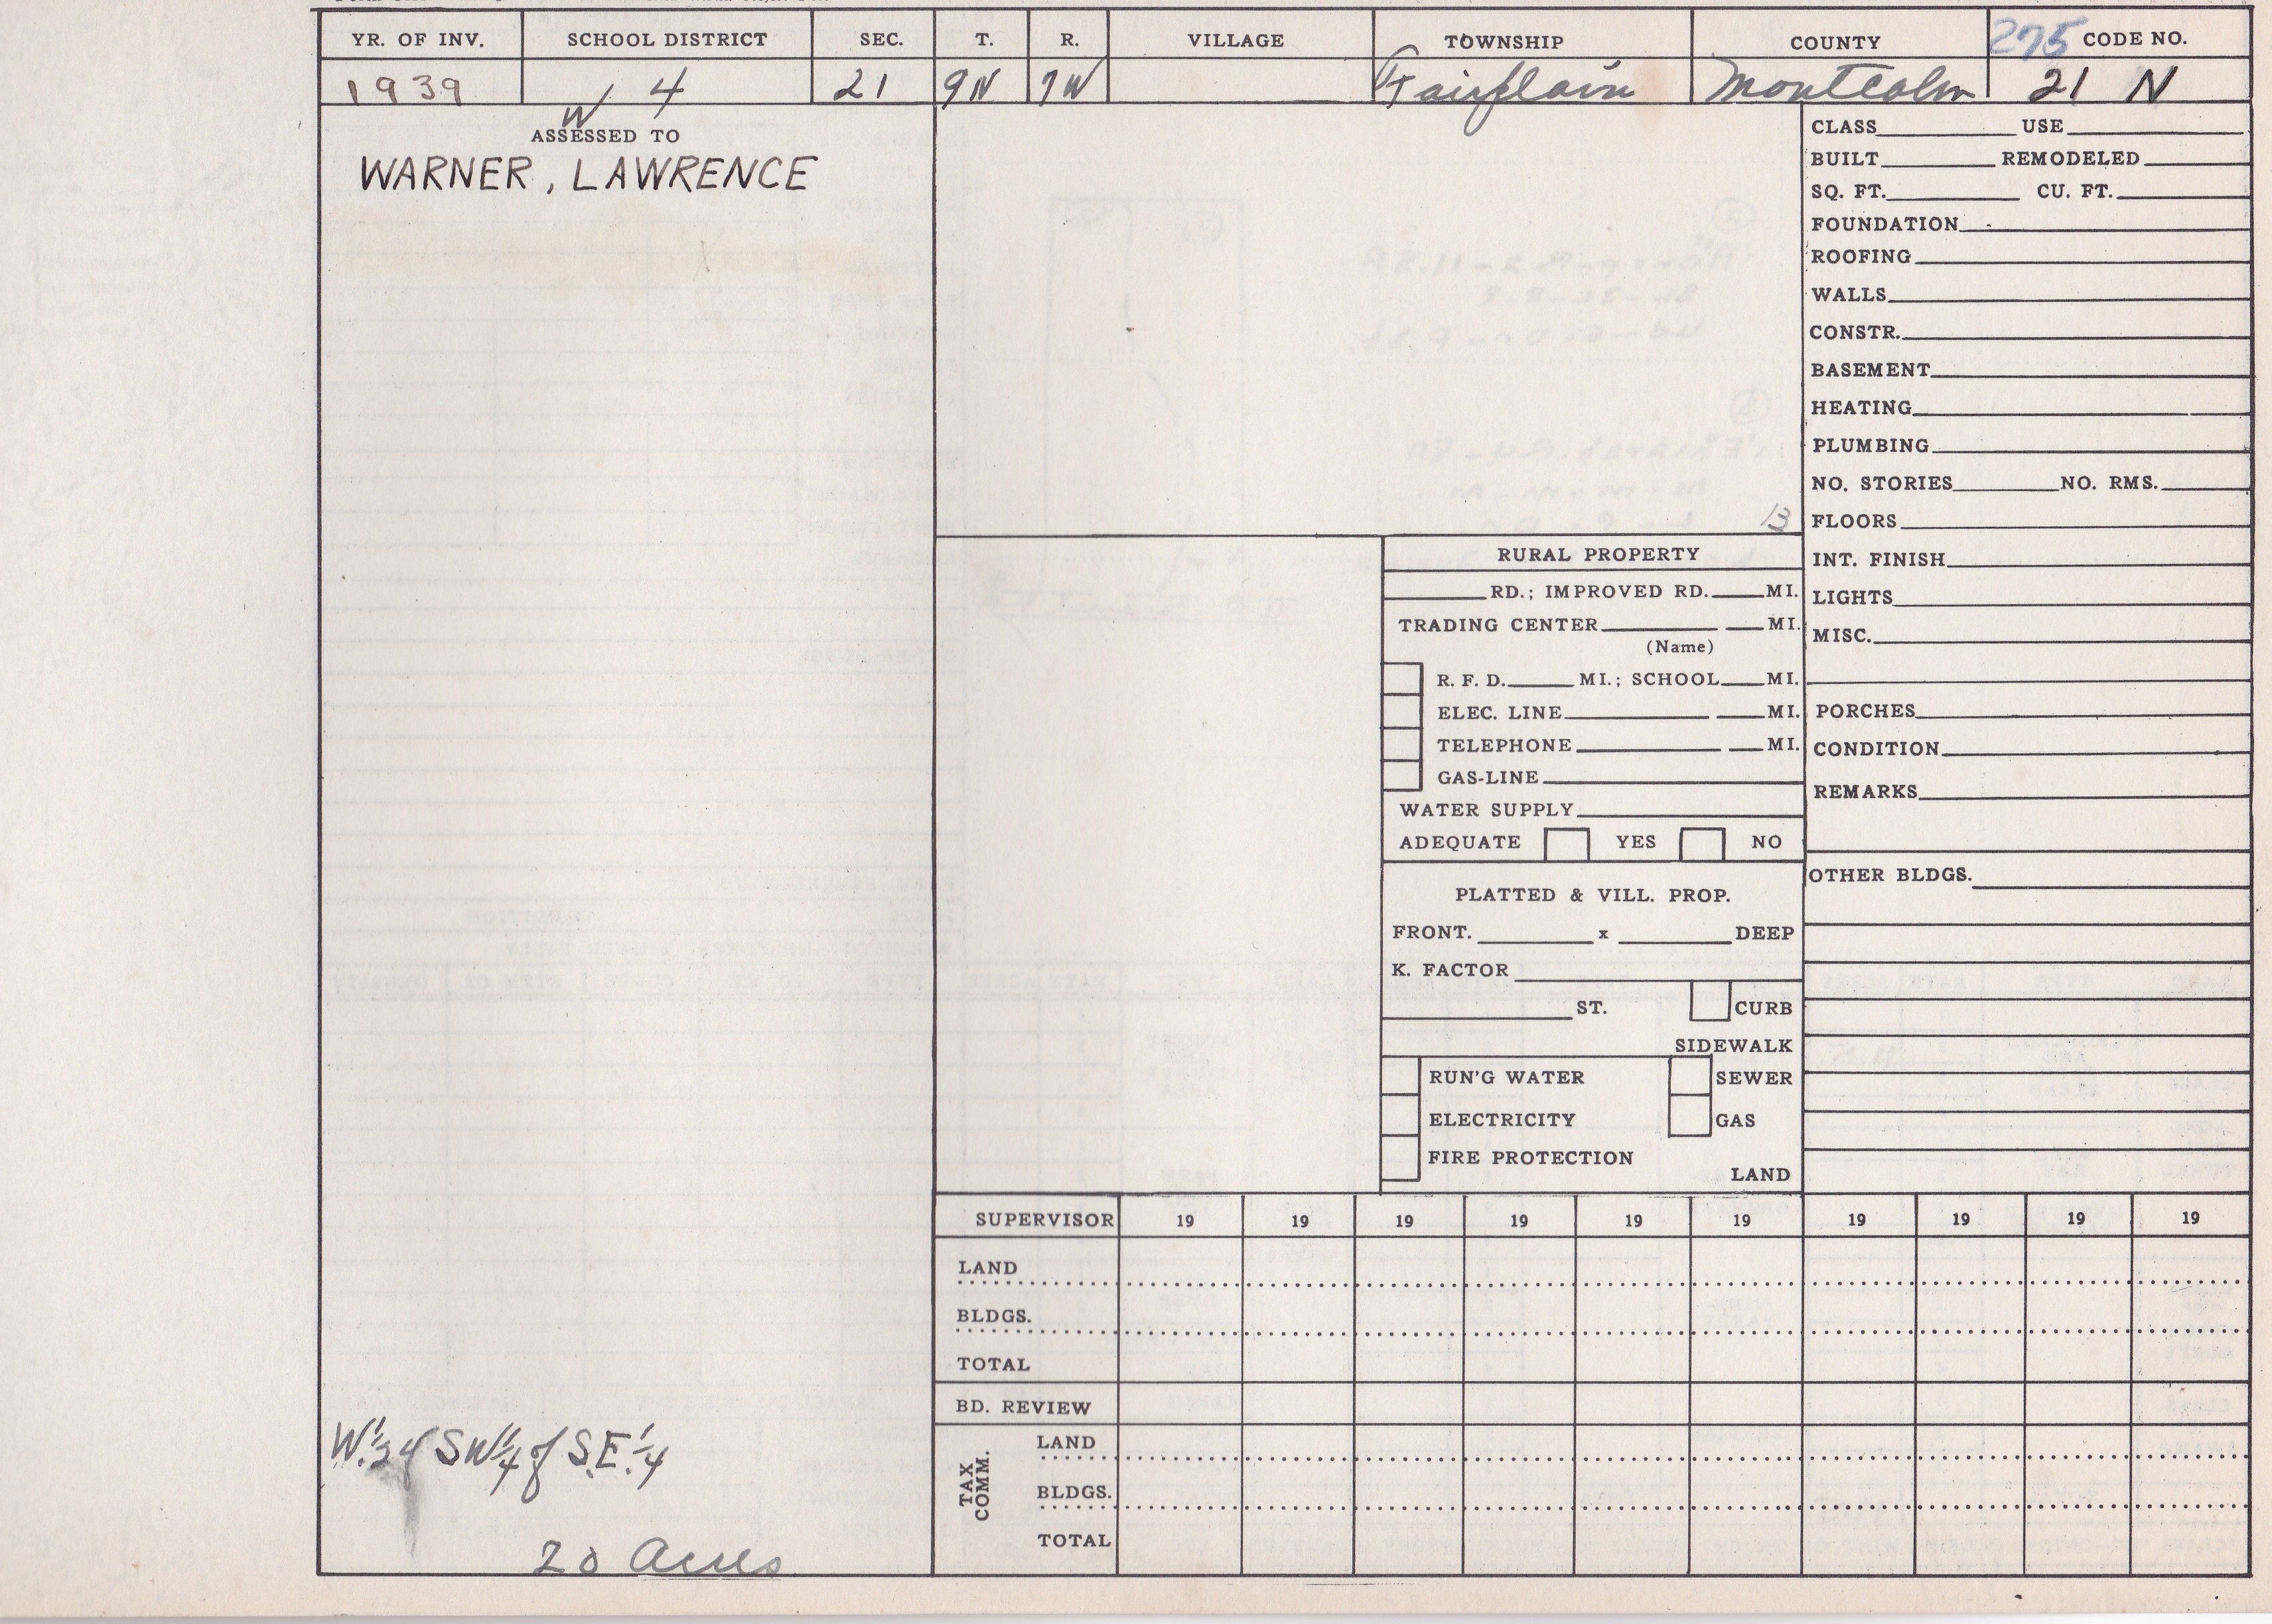 YR. OF INV. SCHOOL DISTRICT SEC. T. R. VILLAGE TOWNSHIP COUNTY 275 CODE NO.
1939 W 4 21 9N 7W Fairplain Montcalm 21 N
ASSESSED TO
WARNER, LAWRENCE
CLASS USE
BUILT REMODELED
SQ. FT. CU. FT.
FOUNDATION
ROOFING
WALLS
CONSTR.
BASEMENT
HEATING
PLUMBING
NO. STORIES NO. RMS.
FLOORS
INT. FINISH
LIGHTS
MISC.
PORCHES
CONDITION
REMARKS
OTHER BLDGS.
13
RURAL PROPERTY
RD.; IMPROVED RD. MI.
TRADING CENTER MI.
(Name)
R. F. D. MI.; SCHOOL MI.
ELEC. LINE MI.
TELEPHONE MI.
GAS-LINE
WATER SUPPLY
ADEQUATE YES NO
PLATTED & VILL. PROP.
FRONT. x DEEP
K. FACTOR
ST. CURB
SIDEWALK
RUN'G WATER SEWER
ELECTRICITY GAS
FIRE PROTECTION
LAND
SUPERVISOR 19 19 19 19 19 19 19 19 19 19
LAND
BLDGS.
TOTAL
BD. REVIEW
TAX COMM.
LAND
BLDGS.
TOTAL
W.1/2 of SW1/4 of S.E.1/4
20 Acres